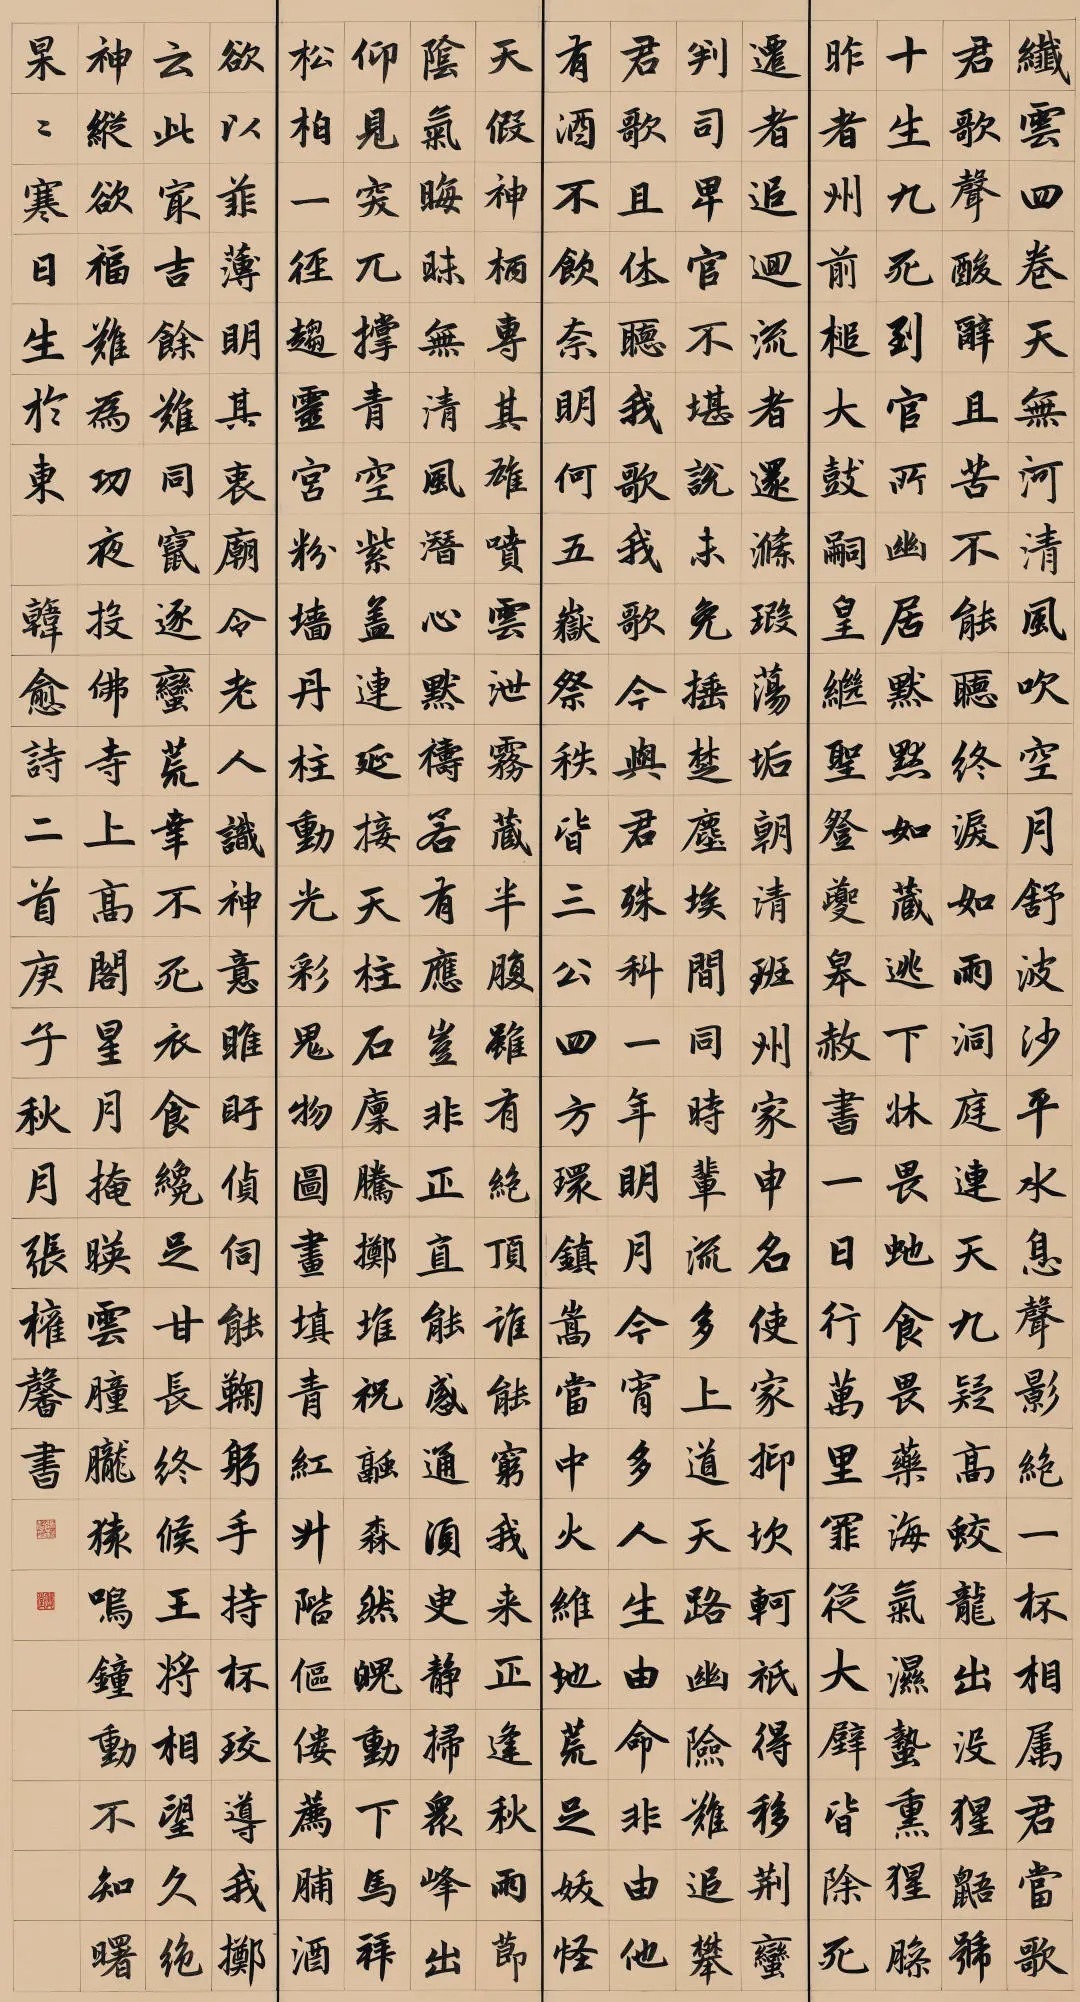 纖雲四卷天無河清風吹空月舒波沙平水息聲影絕一杯相属君當歌
君歌聲酸辭且苦不能聽終淚如雨洞庭連天九疑高蛟龍出没猩鼯號
十生九死到官所幽居默默如藏逃下牀畏虵食畏藥海氣濕蟄熏猩臊
昨者州前槌大鼓嗣皇繼聖登夔皋赦書一日行萬里罪從大辟皆除死
遷者追迴流者還滌瑕蕩垢朝清班州家申名使家抑坎軻祇得移荆蠻
判司卑官不堪說未免捶楚塵埃間同時輩流多上道天路幽險難追攀
君歌且休聽我歌我歌今與君殊科一年明月今宵多人生由命非由他
有酒不飲奈明何五嶽祭秩皆三公四方環鎮嵩當中火維地荒足妖怪
天假神柄專其雄噴雲泄霧藏半腹雖有絕頂誰能窮我来正逢秋雨節
陰氣晦昧無清風潛心默禱若有應豈非正直能感通須臾静掃衆峰出
仰見突兀撑青空紫盖連延接天柱石廩騰擲堆祝融森然魄動下馬拜
松柏一徑趨靈宮粉墙丹柱動光彩鬼物圖畫填青紅升階傴僂薦脯酒
欲以菲薄明其衷廟令老人識神意睢盱偵伺能鞠躬手持杯珓導我擲
云此㝡吉餘難同竄逐蠻荒幸不死衣食纔足甘長終候王將相望久絕
神縱欲福難為功夜投佛寺上高閣星月掩暎雲朣朧猿鳴鐘動不知曙
杲〻寒日生於東 韓愈詩二首庚子秋月張權馨書